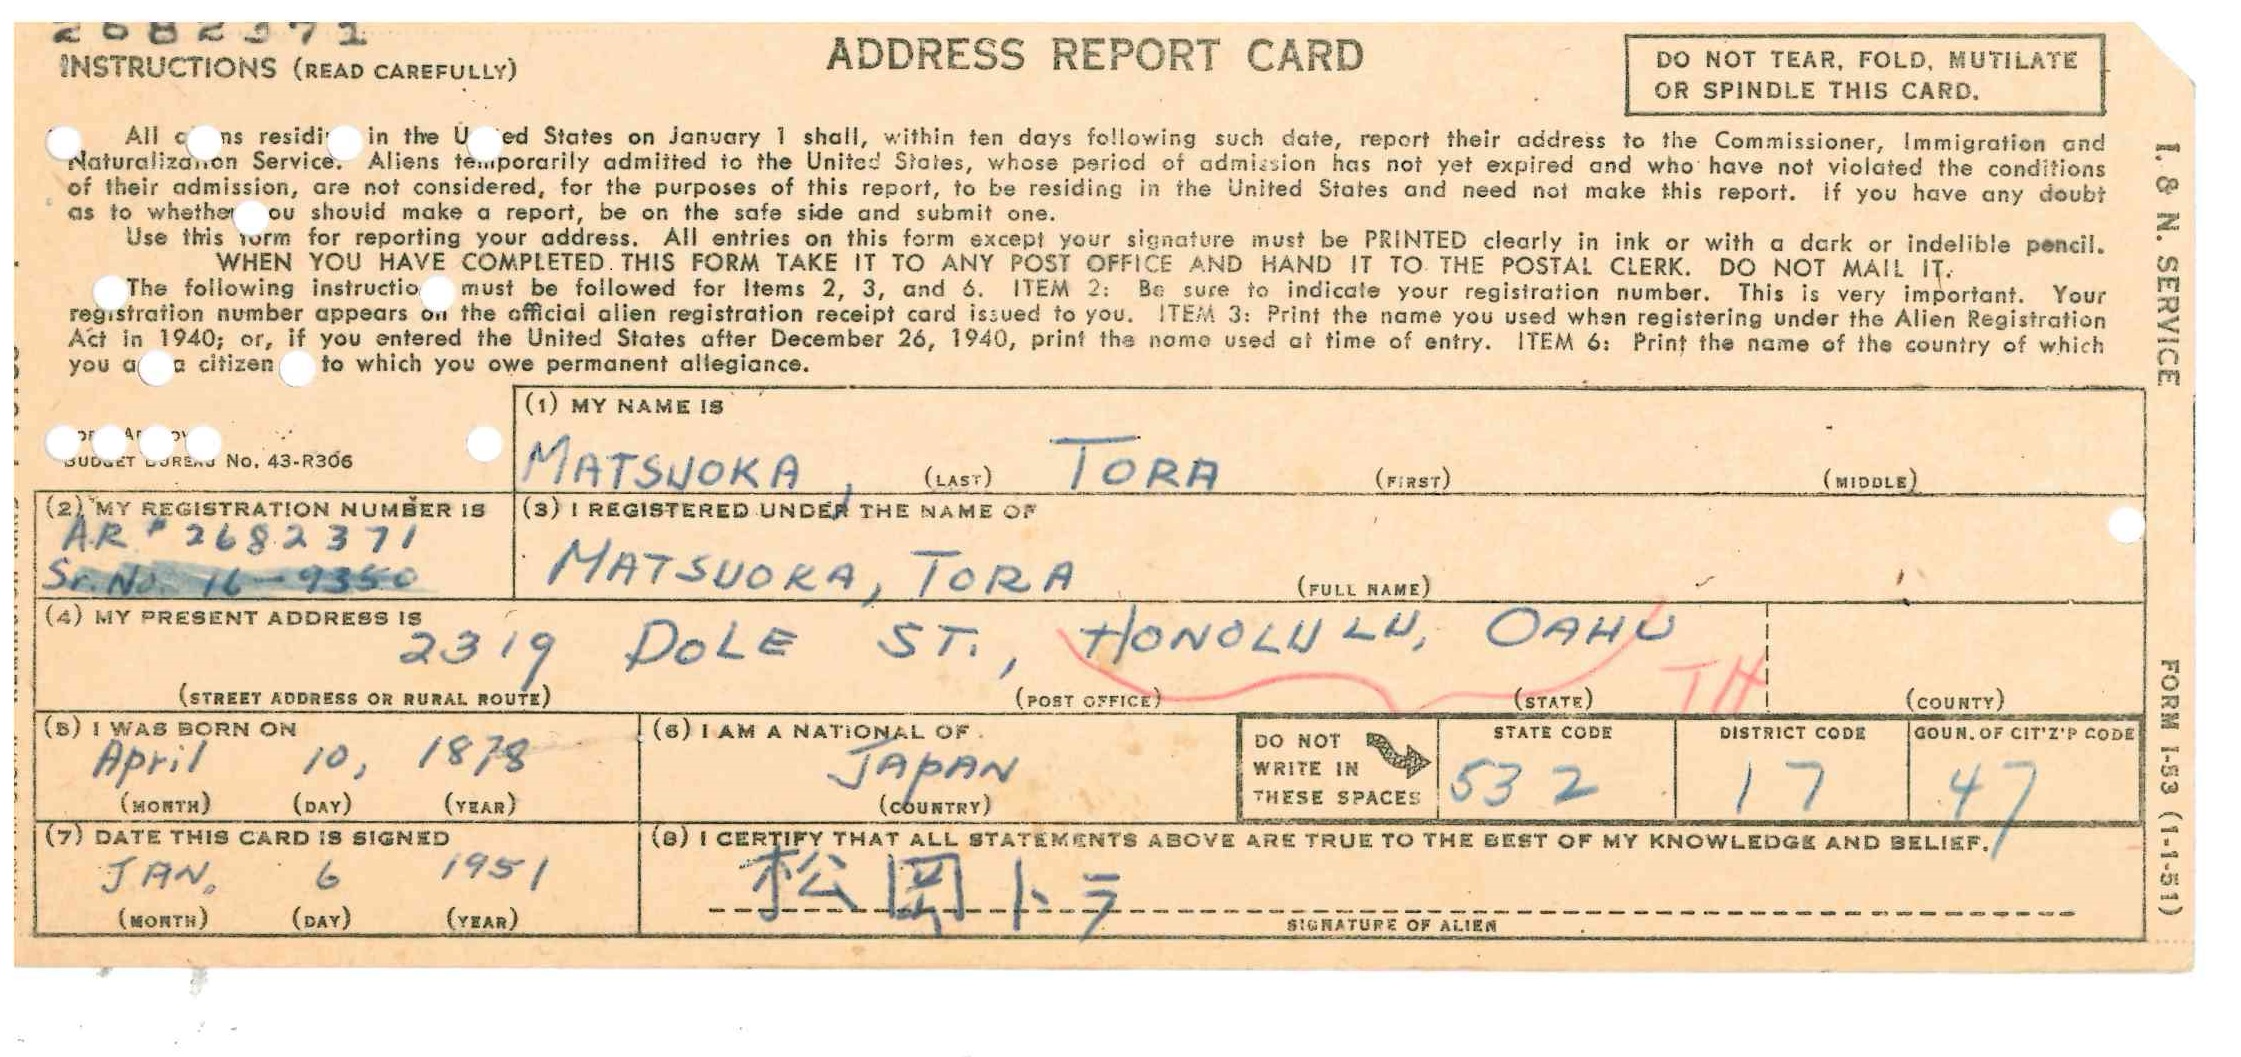 2682371
INSTRUCTIONS (READ CAREFULLY)
ADDRESS REPORT CARD
DO NOT TEAR, FOLD, MUTILATE
OR SPINDLE THIS CARD.
All c ns residi in the U ed States on January 1 shall, within ten days following such date, report their address to the Commissioner, Immigration and
Naturalization Service. Aliens temporarily admitted to the United States, whose period of admission has not yet expired and who have not violated the conditions
of their admission, are not considered, for the purposes of this report, to be residing in the United States and need not make this report. If you have any doubt
as to whether ou should make a report, be on the safe side and submit one.
Use this form for reporting your address. All entries on this form except your signature must be PRINTED clearly in ink or with a dark or indelible pencil.
WHEN YOU HAVE COMPLETED THIS FORM TAKE IT TO ANY POST OFFICE AND HAND IT TO THE POSTAL CLERK. DO NOT MAIL IT.
The following instructio must be followed for Items 2, 3, and 6. ITEM 2: Be sure to indicate your registration number. This is very important. Your
registration number appears on the official alien registration receipt card issued to you. ITEM 3: Print the name you used when registering under the Alien Registration
Act in 1940; or, if you entered the United States after December 26, 1940, print the name used at time of entry. ITEM 6: Print the name of the country of which
you a a citizen to which you owe permanent allegiance.
I. & N. SERVICE
FORM I-53 (1-1-51)
BUDGET BUREAU No. 43-R306
(1) MY NAME IS
MATSUOKA, TORA
(LAST) (FIRST) (MIDDLE)
(2) MY REGISTRATION NUMBER IS
AR # 2682371
Sr. No. 16-9350
(3) I REGISTERED UNDER THE NAME OF
MATSUOKA, TORA
(FULL NAME)
(4) MY PRESENT ADDRESS IS
2319 DOLE ST., HONOLULU, OAHU
TH
(STREET ADDRESS OR RURAL ROUTE) (POST OFFICE) (STATE) (COUNTY)
(5) I WAS BORN ON
April 10, 1878
(MONTH) (DAY) (YEAR)
(6) I AM A NATIONAL OF
JAPAN
(COUNTRY)
DO NOT
WRITE IN
THESE SPACES
STATE CODE
532
DISTRICT CODE
17
COUN. OF CIT'Z'P CODE
47
(7) DATE THIS CARD IS SIGNED
JAN. 6 1951
(MONTH) (DAY) (YEAR)
(8) I CERTIFY THAT ALL STATEMENTS ABOVE ARE TRUE TO THE BEST OF MY KNOWLEDGE AND BELIEF.
松岡トラ
SIGNATURE OF ALIEN